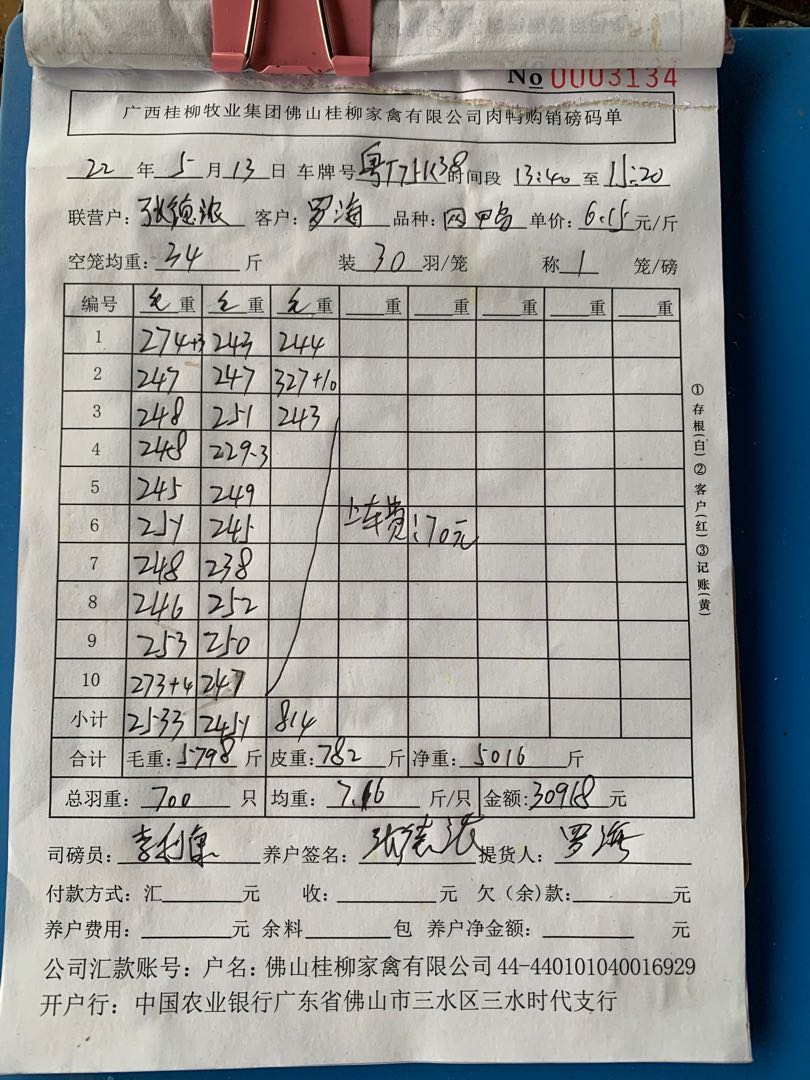 No 0003134
广西桂柳牧业集团佛山桂柳家禽有限公司肉鸭购销磅码单
22年5月13日 车牌号粤T75K38时间段 13:40至15:20
联营户:张德浓 客户:罗海 品种: 单价:6.15元/斤
空笼均重:34斤 装30羽/笼 称1笼/磅
编号 毛重 毛重 毛重 重 重 重 重 重
1 274+3 243 244
2 247 247 327+10
3 248 251 243
4 248 229-3
5 245 249
6 251 245 上车费:70元
7 248 238
8 246 252
9 253 250
10 273+4 247
小计 2533 2451 814
合计 毛重:5798斤 皮重:782斤 净重:5016斤
总羽重:700只 均重:7.16斤/只 金额:30968元
司磅员: 养户签名:张德浓 提货人:罗海
付款方式:汇 元 收: 元 欠(余)款: 元
养户费用: 元 余料 包 养户净金额: 元
公司汇款账号:户名:佛山桂柳家禽有限公司44-440101040016929
开户行:中国农业银行广东省佛山市三水区三水时代支行
①存根(白)②客户(红)③记账(黄)